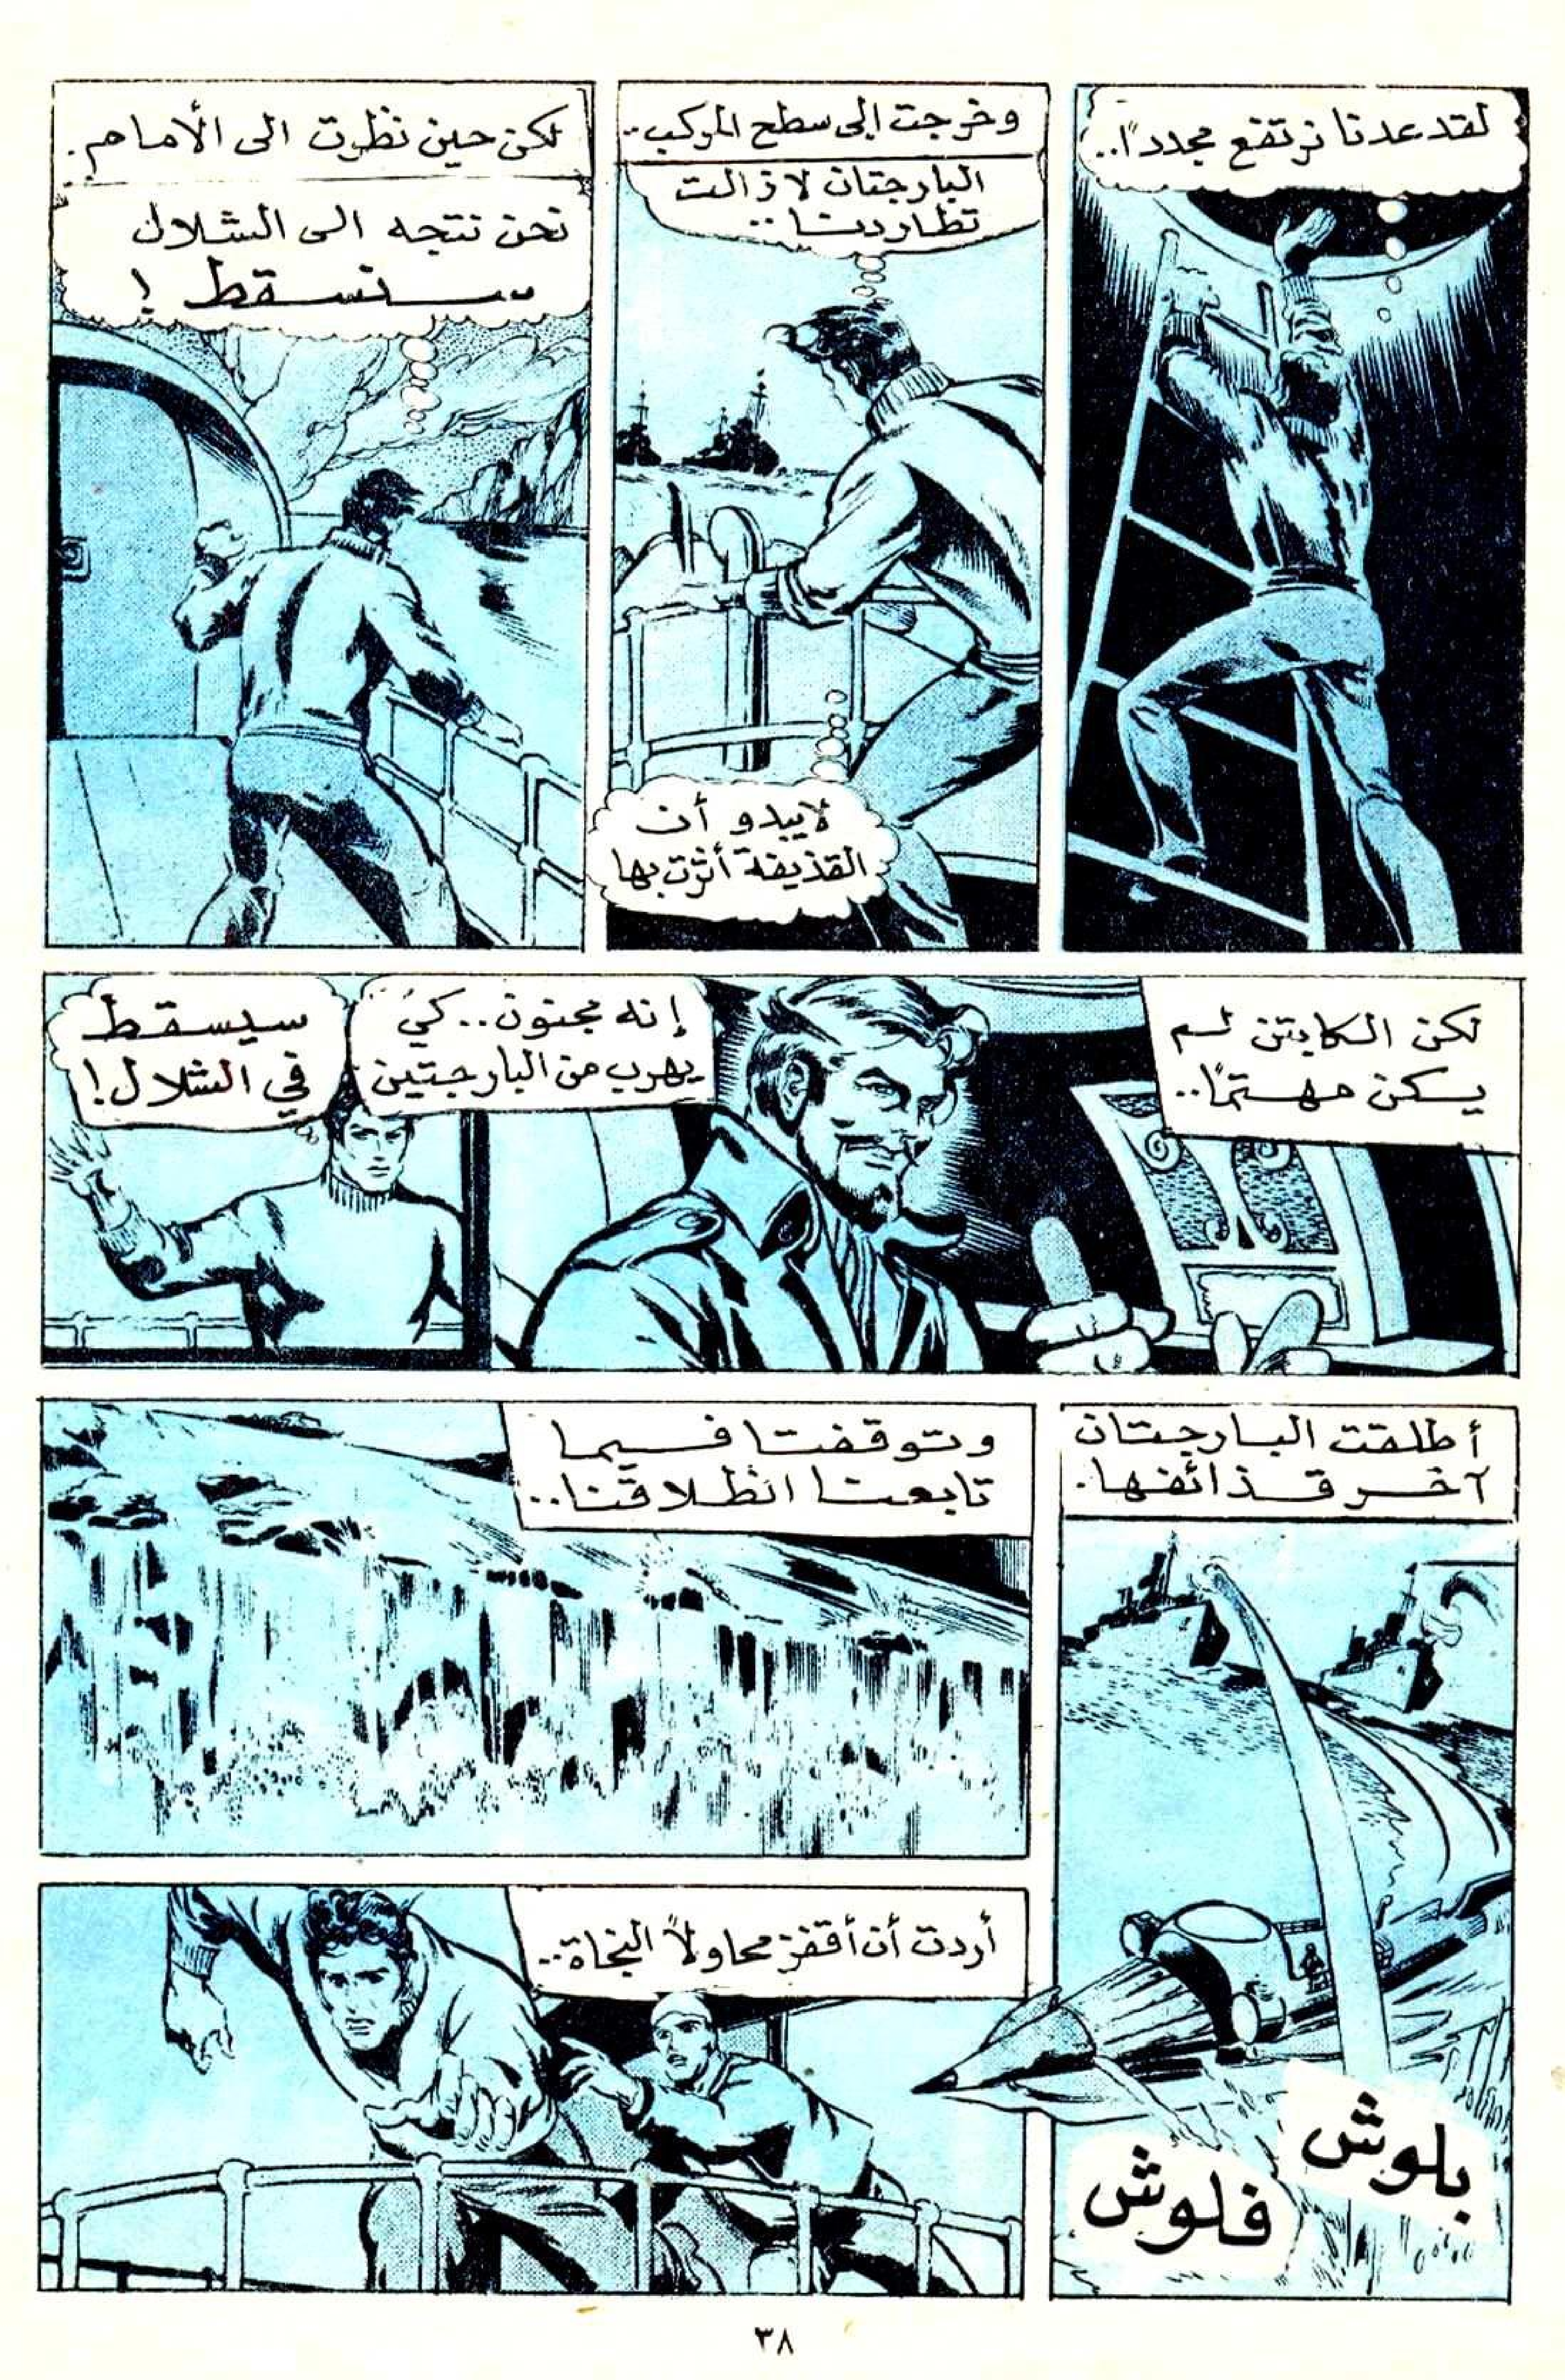 لقد عدنا نرتفع مجدداً..
وخرجت إلى سطح المركب..
البارجتان لا زالت
تطاردنا..
لا يبدو أن
القذيفة أثرت بها
لكن حين نظرت الى الأمام.
نحن نتجه الى الشلال
سنسقط !
لكن الكابتن لم
يكن مهتماً..
إنه مجنون.. كي
يهرب من البارجتين
سيسقط
في الشلال!
أطلقت البارجتان
آخر قذائفها.
بلوش
فلوش
وتوقفتا فيما
تابعنا انطلاقنا..
أردت أن أقفز محاولاً النجاة..
٣٨